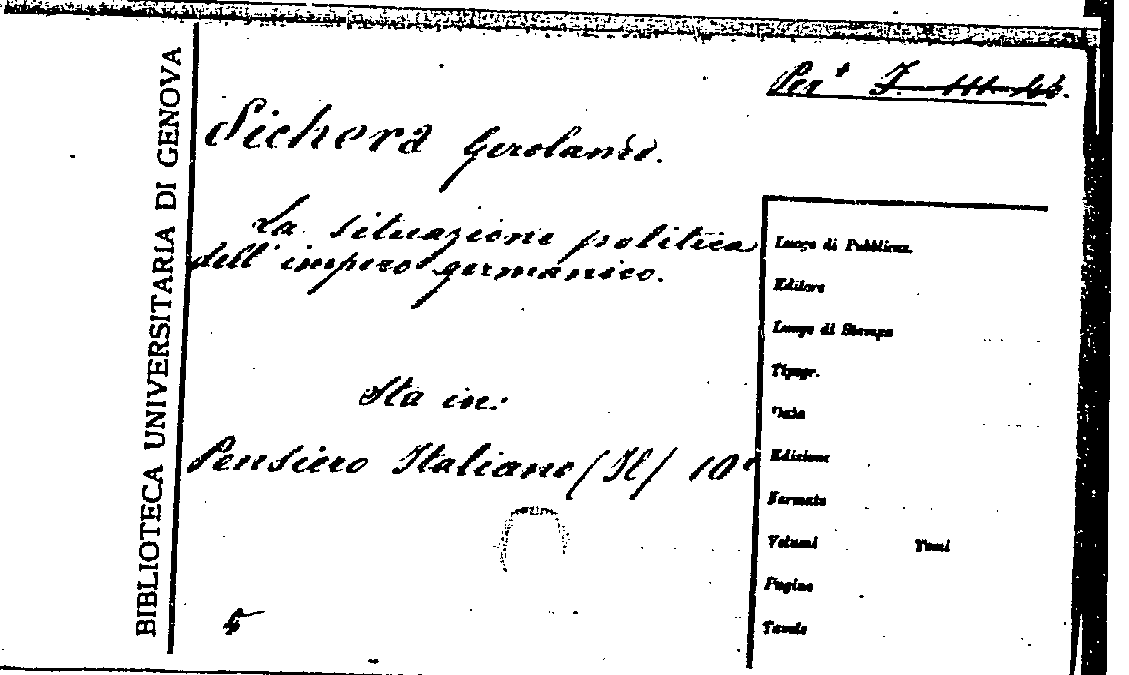 BIBLIOTECA UNIVERSITARIA DI GENOVA
Per.ᵗ
Sichera Gerolamo.
La situazione politica
dell'impero germanico.
Sta in:
Pensiero Italiano (Il) 10°
5
Luogo di Pubblicaz.
Editore
Luogo di Stampa
Tipogr.
Data
Edizione
Formato
Volumi Tomi
Pagine
Tavole